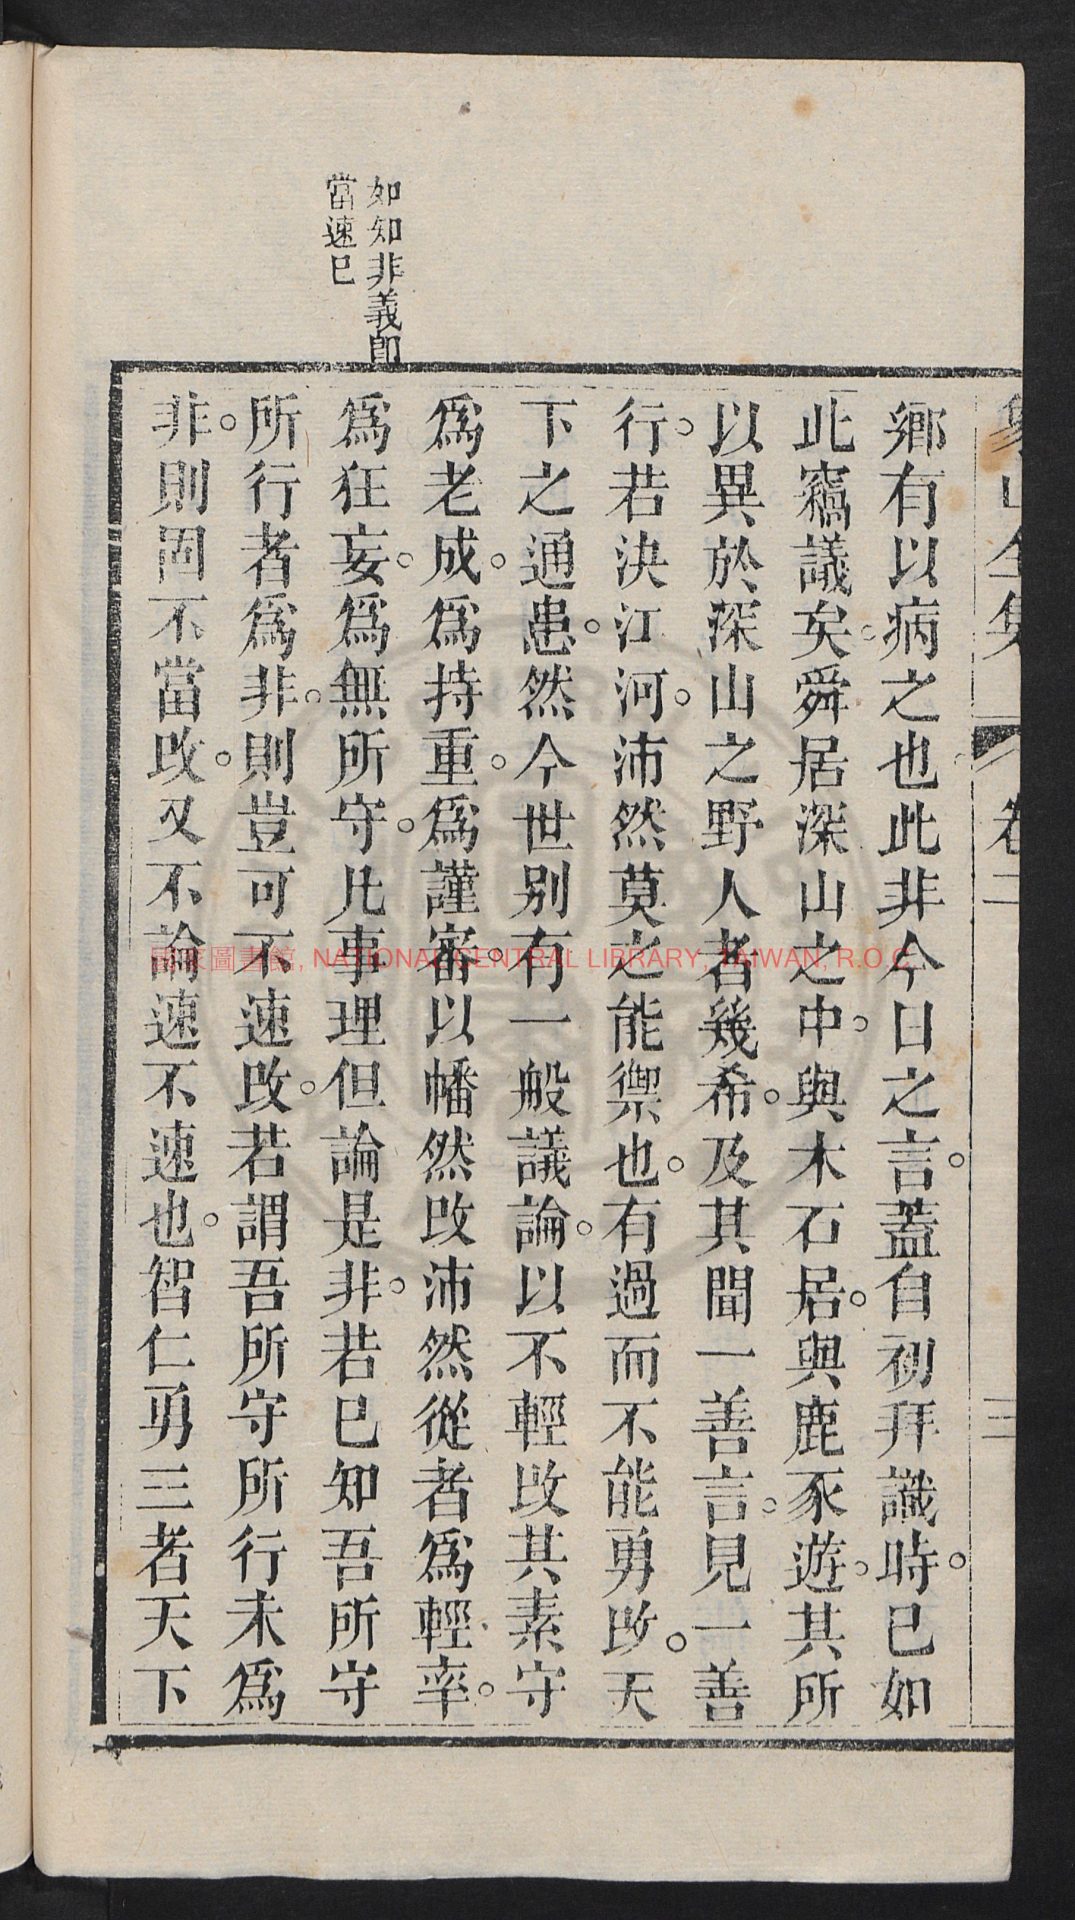 象山全集 卷二 三
鄉有以病之也此非今日之言。蓋自初拜識時。已如
此竊議矣。舜居深山之中。與木石居。與鹿豕遊。其所
以異於深山之野人者幾希。及其聞一善言。見一善
行。若決江河。沛然莫之能禦也。有過而不能勇改。天
下之通患。然今世別有一般議論。以不輕改其素守
為老成。為持重。為謹審。以幡然改沛然從者為輕率。
為狂妄。為無所守。凡事理但論是非。若已知吾所守
所行者為非。則豈可不速改。若謂吾所守所行未為
非。則固不當改。又不論速不速也。智仁勇三者天下
如知非義即
當速已
國家圖書館, NATIONAL CENTRAL LIBRARY, TAIWAN, R.O.C